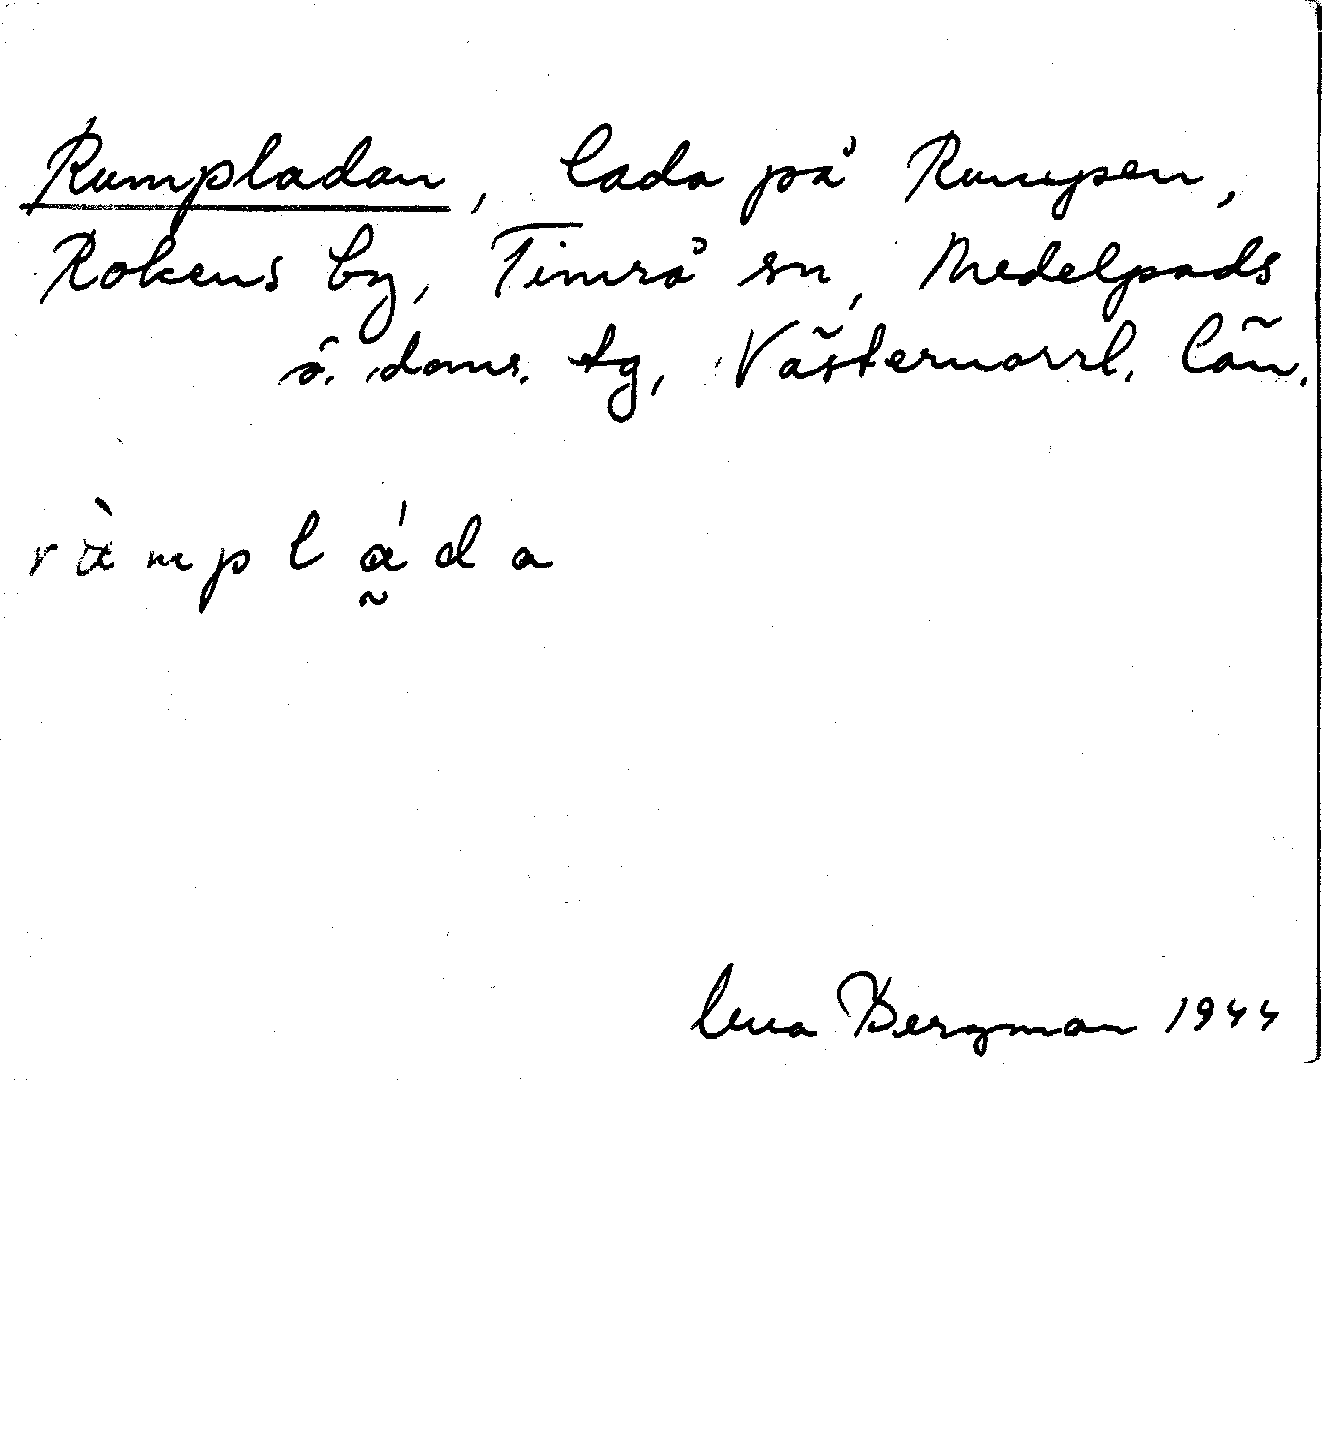 Rumpladan, lada på Rumpen,
Rokens by, Timrå sn, Medelpads
ö. doms. tg, Västernorrl. län.
ràmplá̰da
Lena Bergman 1944